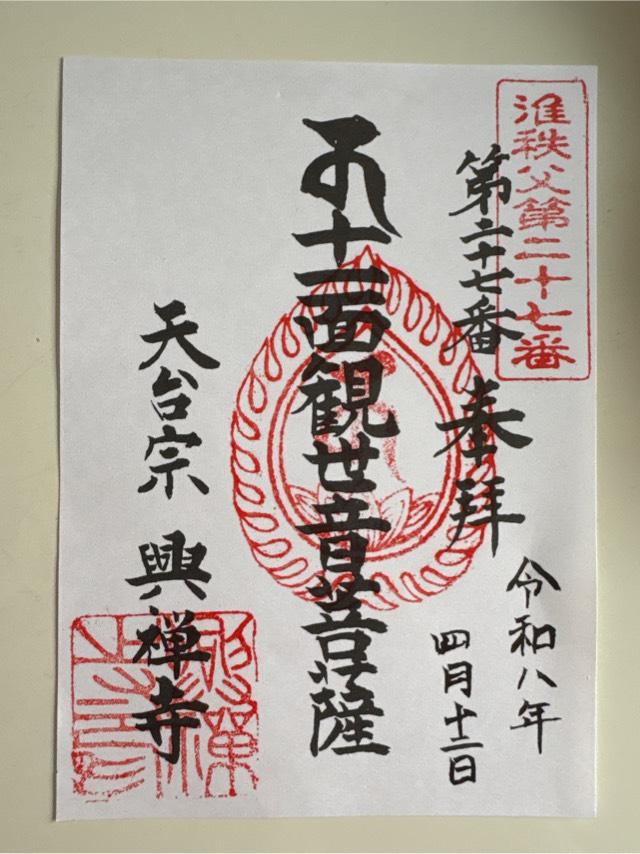 准秩父第二十七番
第二十七番
奉拜
令和八年
四月十二日
十一面観世音菩薩
天台宗 興禅寺